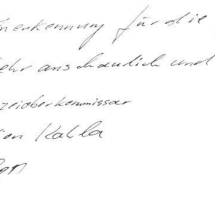 nerkennung für die
ehr anschaulich und
zeioberkommissar
Kahla